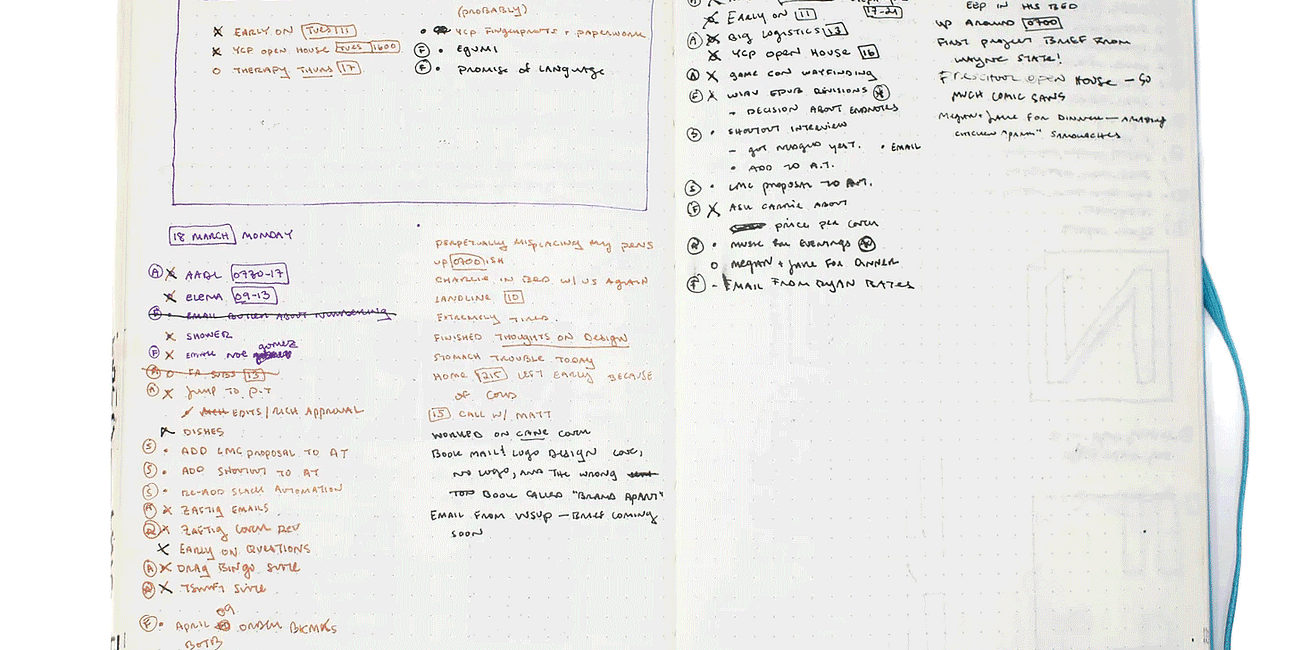 (PROBABLY)
X EARLY ON TUES 11
X YCP OPEN HOUSE TUES 1600
O THERAPY THURS 17
• YCP FINGERPRINTS + PAPERWORK
F • EQUMI
F • PROMISE OF LANGUAGE
18 MARCH MONDAY
A X AABL 0730-17
X ELENA 09-13
EMAIL ABOUT NUMBERING
X SHOWER
F X EMAIL NOE GOMEZ
FA SUBS 13
A X JUMP TO P.T
EDITS / RICH APPROVAL
X DISHES
S • ADD LMC PROPOSAL TO AT
S • ADD SHOUTOUT TO AT
S • RE-ADD SLACK AUTOMATION
A X ZAFTIG EMAILS
A X ZAFTIG COVER REV
X EARLY ON QUESTIONS
A X DRAG BINGO SUITE
A X SUITE
F • APRIL 09 ORDER
BOTB
PERPETUALLY MISPLACING MY PENS
UP 0700 ISH
CHARLIE IN BED W/ US AGAIN
LANDLINE 10
EXTREMELY TIRED.
FINISHED THOUGHTS ON DESIGN
STOMACH TROUBLE TODAY
HOME 1215 LEFT EARLY BECAUSE
OF COLD
15 CALL W/ MATT
WORKED ON CANE COVER
BOOK MAIL! LOGO DESIGN LOVE,
NO LOGO, AND THE WRONG
BOOK CALLED "BRAND APART"
EMAIL FROM WSUP — BRIEF COMING
SOON
X EARLY ON 11 17-21
A X BIG LOGISTICS 13
X YCP OPEN HOUSE 16
A X GAME CON WAYFINDING
F X EPUB REVISIONS
DECISION ABOUT ENDNOTES
S • SHOUTOUT INTERVIEW
– GOT YEST. • EMAIL
• ADD TO A.T.
S • LMC PROPOSAL TO A.T.
F X ASK CARRIE ABOUT
PRICE PER COVER
• MUSIC FOR EVENINGS
O MEGAN + JANE FOR DINNER
F - EMAIL FROM RYAN BATES
EEP IN HIS BED
UP AROUND 0700
FIRST PROJECT BRIEF FROM
WAYNE STATE!
PRESCHOOL OPEN HOUSE — SO
MUCH COMIC SANS
MEGAN + JANE FOR DINNER — AMAZING
CHICKEN "PARM" SANDWICHES